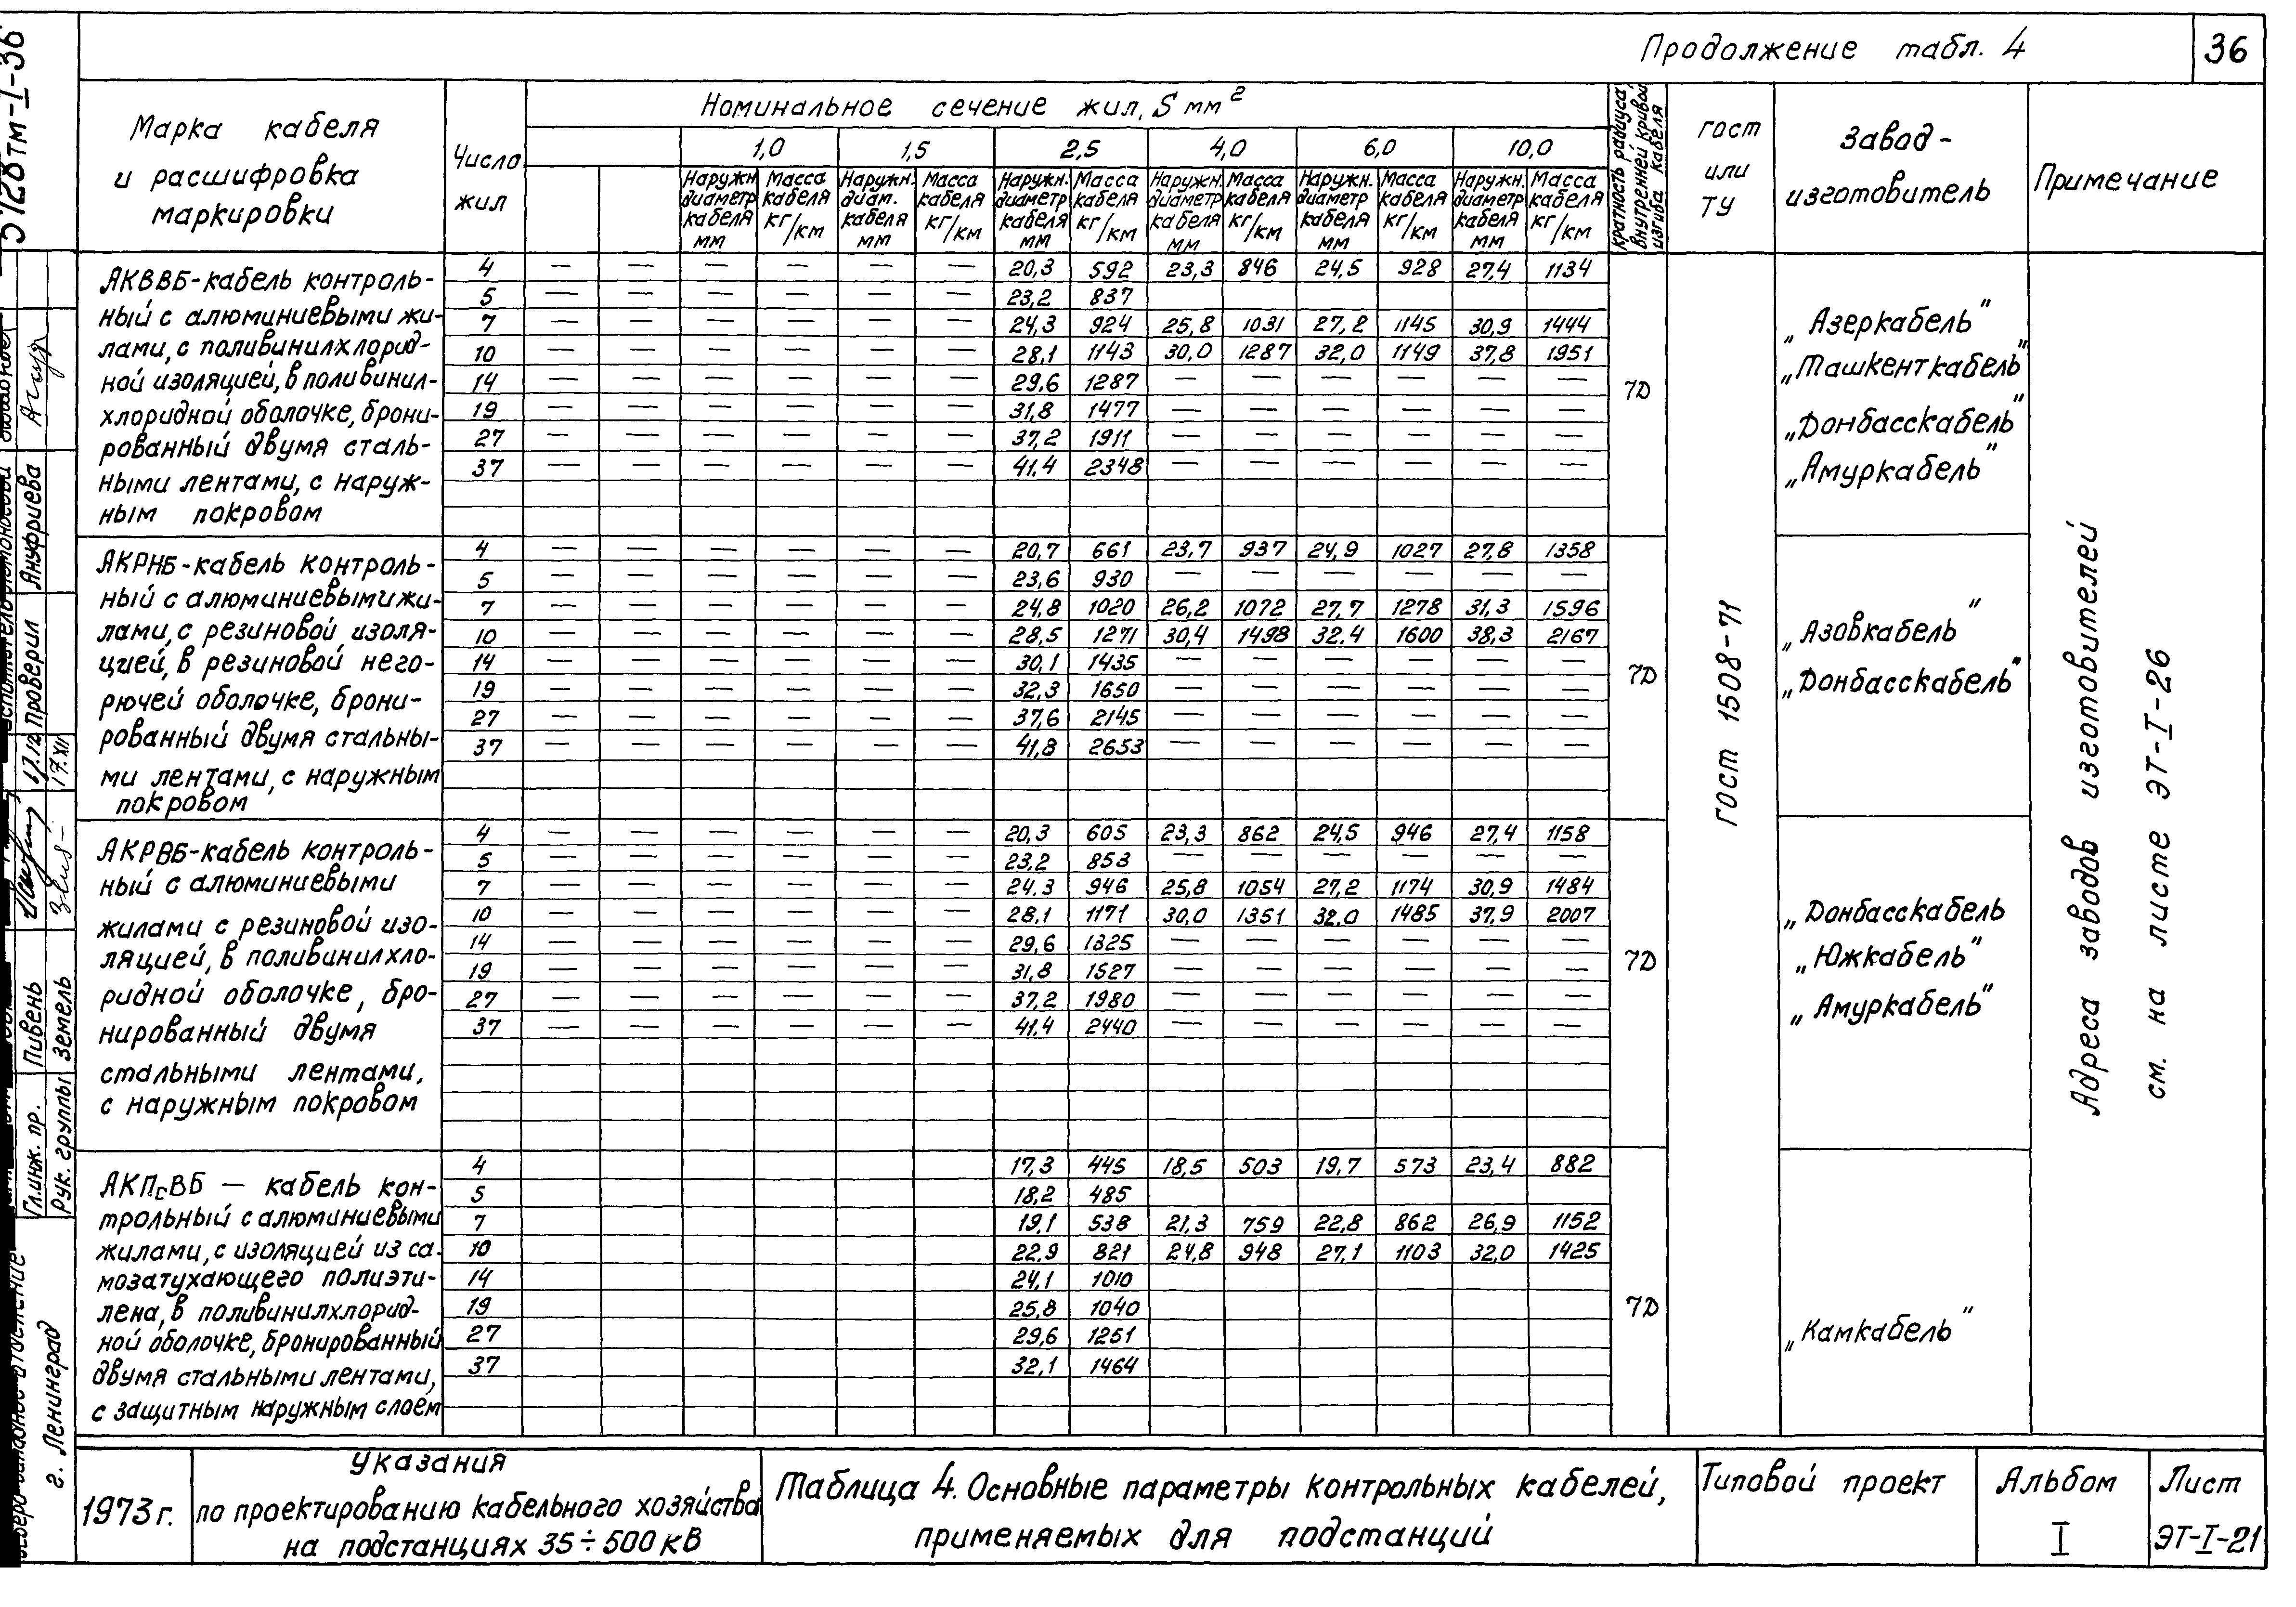 Продолжение табл. 4
36
5128тм-I-36
Марка кабеля
и расшифровка
маркировки
Число
жил
Номинальное сечение жил, S мм²
1,0 1,5 2,5 4,0 6,0 10,0
Наружн. диаметр кабеля мм
Масса кабеля кг/км
Наружн. диам. кабеля мм
Масса кабеля кг/км
Наружн. диаметр кабеля мм
Масса кабеля кг/км
Наружн. диаметр кабеля мм
Масса кабеля кг/км
Наружн. диаметр кабеля мм
Масса кабеля кг/км
Наружн. диаметр кабеля мм
Масса кабеля кг/км
Кратность радиуса
внутренней кривой
изгиба кабеля
гост
или
ТУ
Завод-
изготовитель
Примечание
АКВВБ-кабель контроль-
ный с алюминиевыми жи-
лами, с поливинилхлорид-
ной изоляцией, в поливинил-
хлоридной оболочке, брони-
рованный двумя сталь-
ными лентами, с наруж-
ным покровом
4 — — — — — — 20,3 592 23,3 846 24,5 928 27,4 1134
5 — — — — — — 23,2 837
7 — — — — — — 24,3 924 25,8 1031 27,2 1145 30,9 1444
10 — — — — — — 28,1 1143 30,0 1287 32,0 1149 37,8 1951
14 — — — — — — 29,6 1287 — — — — — —
19 — — — — — — 31,8 1477 — — — — — —
27 — — — — — — 37,2 1911 — — — — — —
37 — — — — — — 41.4 2348 — — — — — —
7D
„Азеркабель"
„Ташкенткабель"
„Донбасскабель"
„Амуркабель"
АКРНБ-кабель контроль-
ный с алюминиевыми жи-
лами, с резиновой изоля-
цией, в резиновой него-
рючей оболочке, брони-
рованный двумя стальны-
ми лентами, с наружным
покровом
4 — — — — — — 20,7 661 23,7 937 24,9 1027 27,8 1358
5 — — — — — — 23,6 930 — — — — — —
7 — — — — — — 24,8 1020 26,2 1072 27,7 1278 31,3 1596
10 — — — — — — 28,5 1271 30,4 1498 32.4 1600 38,3 2167
14 — — — — — — 30,1 1435 — — — — — —
19 — — — — — — 32,3 1650 — — — — — —
27 — — — — — — 37,6 2145 — — — — — —
37 — — — — — — 41,8 2653 — — — — — —
7D
„Азовкабель"
„Донбасскабель"
АКРВБ-кабель контроль-
ный с алюминиевыми
жилами с резиновой изо-
ляцией, в поливинилхло-
ридной оболочке, бро-
нированный двумя
стальными лентами,
с наружным покровом
4 — — — — — — 20,3 605 23,3 862 24,5 946 27,4 1158
5 — — — — — — 23,2 853 — — — — — —
7 — — — — — — 24.3 946 25,8 1054 27,2 1174 30,9 1484
10 — — — — — — 28,1 1171 30,0 1351 32.0 1485 37,9 2007
14 — — — — — — 29,6 1325 — — — — — —
19 — — — — — — 31,8 1527 — — — — — —
27 — — — — — — 37,2 1980 — — — — — —
37 — — — — — — 41,4 2440 — — — — — —
7D
„Донбасскабель
„Южкабель"
„Амуркабель"
АКПсВБ — кабель кон-
трольный с алюминиевыми
жилами, с изоляцией из са-
мозатухающего полиэти-
лена, в поливинилхлорид-
ной оболочке, бронированный
двумя стальными лентами,
с защитным наружным слоем
4 17,3 445 18,5 503 19,7 573 23,4 882
5 18,2 485
7 19,1 538 21,3 759 22,8 862 26,9 1152
10 22.9 821 24,8 948 27,1 1103 32,0 1425
14 24,1 1010
19 25,8 1040
27 29,6 1251
37 32,1 1464
7D
„Камкабель"
гост 1508-71
Адреса заводов изготовителей
см. на листе ЭТ-I-26
Проверил Ануфриева
17.XII
Гл.инж. пр. Пивень
Рук. группы Земель
г. Ленинград
1973г.
Указания
по проектированию кабельного хозяйства
на подстанциях 35÷500кВ
Таблица 4. Основные параметры контрольных кабелей,
применяемых для подстанций
Типовой проект
Альбом
I
Лист
ЭТ-I-21